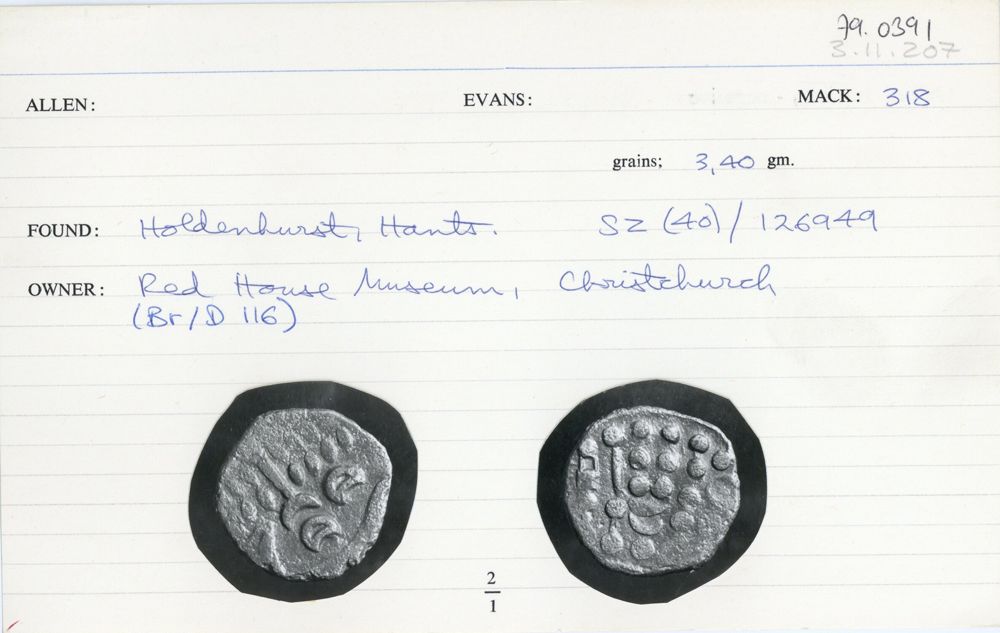 79.0391
3.11.207
ALLEN: EVANS: MACK: 318
grains; 3,40 gm.
FOUND: Holdenhurst, Hants. SZ (40) / 126949
OWNER: Red House Museum, Christchurch
(Br/D 116)
2
1